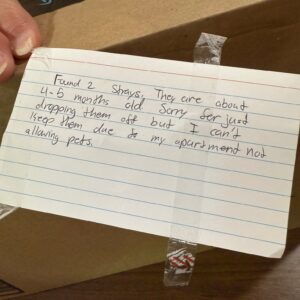 Found 2 Strays. They are about
4-5 months old Sorry for just
dropping them off but I can't
keep them due to my apartment not
allowing pets.